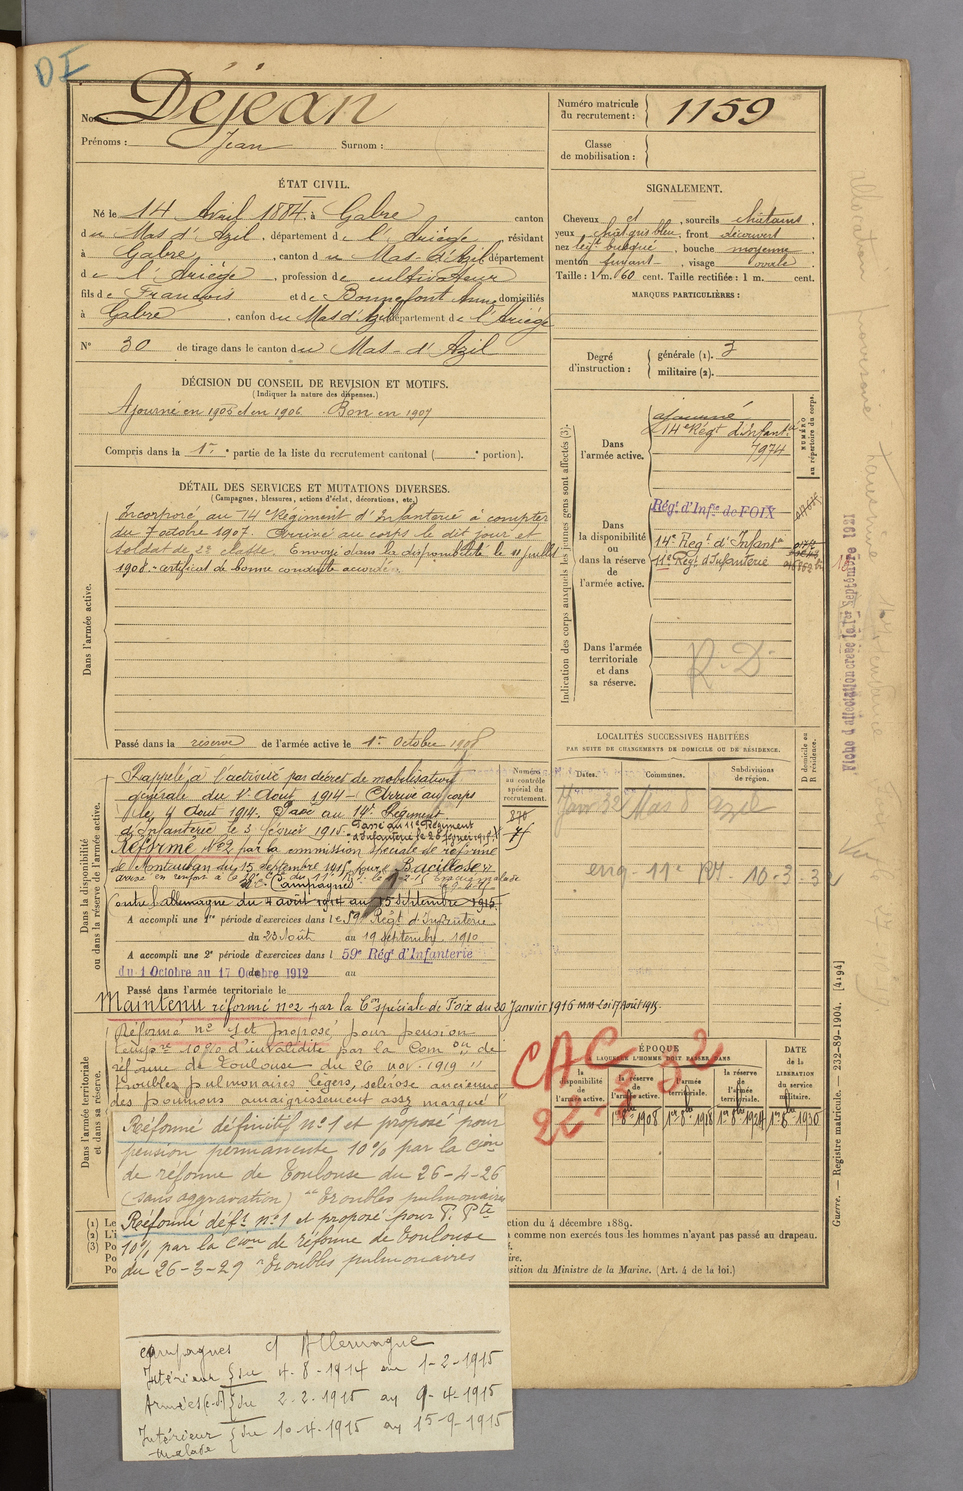 DI
Nom : Déjean
Prénoms : Jean Surnom :
Numéro matricule du recrutement : 1159
Classe de mobilisation :
ÉTAT CIVIL.
Né le 14 Avril 1884, à Gabre canton
du Mas d'Azil, département de l'Ariège, résidant
à Gabre, canton du Mas-d'Azil département
de l'Ariège, profession de cultivateur
fils de François et de Bonnefont Anne domiciliés
à Gabre, canton du Mas d'Azil département de l'Ariège
N° 30 de tirage dans le canton du Mas-d'Azil
SIGNALEMENT.
Cheveux et, sourcils châtains,
yeux chât gris bleu, front découvert,
nez légt busqué, bouche moyenne
menton fuyant, visage ovale.
Taille : 1 m. 60 cent. Taille rectifiée : 1 m. cent.
MARQUES PARTICULIÈRES :
Degré d'instruction : générale (1). 3
militaire (2).
DÉCISION DU CONSEIL DE REVISION ET MOTIFS.
(Indiquer la nature des dispenses.)
Ajourné en 1905 et en 1906. Bon en 1907
Compris dans la 1re partie de la liste du recrutement cantonal ( e portion).
DÉTAIL DES SERVICES ET MUTATIONS DIVERSES.
(Campagnes, blessures, actions d'éclat, décorations, etc.)
Dans l'armée active.
Incorporé au 14e Régiment d'Infanterie à compter
du 7 octobre 1907. Arrivé au corps le dit jour et
soldat de 2e classe. Envoyé dans la disponibilité le 11 juillet
1908. certificat de bonne conduite accordé.
Passé dans la réserve de l'armée active le 1er Octobre 1908
Indication des corps auxquels les jeunes gens sont affectés (3).
NUMÉRO au répertoire du corps.
Dans l'armée active.
ajourné
14e Régt d'Infant.
7974
Dans la disponibilité ou dans la réserve de l'armée active.
Rég. d'Infie de FOIX
14e Regt d'Infante
11e Regt d'Infanterie
Dans l'armée territoriale et dans sa réserve.
R.D.
Fiche d'affectation créée le 1er Septembre 1921
LOCALITÉS SUCCESSIVES HABITÉES
PAR SUITE DE CHANGEMENTS DE DOMICILE OU DE RÉSIDENCE.
Dates. Communes. Subdivisions de région. D domicile ou R résidence.
Janv 32 Mas d'azil
Dans la disponibilité ou dans la réserve de l'armée active.
Numéro au contrôle spécial du recrutement.
Rappelé à l'activité par décret de mobilisation
générale du 1er Août 1914 – Arrivé au corps
le 4 Août 1914. Passé au 14e Régiment
d'Infanterie le 3 février 1915. Passé au 11e Régiment
d'Infanterie le 26 février 1915
Réformé No2 par la commission spéciale de réforme
de Montauban du 15 septembre 1915 pour Bacillose
Campagnes
Contre l'allemagne du 4 août 1914 au 15 septembre 1915.
A accompli une 1re période d'exercices dans le 59e Régt d'Infanterie
du 23 Août au 19 septembre 1910
A accompli une 2e période d'exercices dans l 59e Régt d'Infanterie
du 1 Octobre au 17 Octobre 1912 au
Passé dans l'armée territoriale le
Maintenu réformé no2 par la Con spéciale de Foix du 20 Janvier 1916
Dans l'armée territoriale et dans sa réserve.
Réformé no 1 et proposé pour pension
tempre 10% d'invalidité par la Com on de
réforme de Toulouse du 26 nov. 1919
troubles pulmonaires légers, sclérose ancienne
des poumons amaigrissement assez marqué
ÉPOQUE
À LAQUELLE L'HOMME DOIT PASSER DANS
la disponibilité de l'armée active.
la réserve de l'armée active.
l'armée territoriale.
la réserve de l'armée territoriale.
DATE de la LIBÉRATION du service militaire.
CAC
1er 8bre 1908 1er 8bre 1918 1er 8bre 1924 1er 8bre 1930
Réformé définitif no 1 et proposé pour
pension permanente 10% par la Cion
de réforme de Toulouse du 26-4-26
(sans aggravation) "Troubles pulmonaires
Réformé déft no 1 et proposé pour P. Pte
10% par la Cion de réforme de Toulouse
du 26-3-29 "Troubles pulmonaires
(1) Le
(2) L'i
(3) Po
Po
Po
ction du 4 décembre 1889.
comme non exercés tous les hommes n'ayant pas passé au drapeau.
position du Ministre de la Marine. (Art. 4 de la loi.)
Guerre. — Registre matricule. — 232-89-1904. [4194]
campagnes cf Allemagne
Intérieur du 4-8-1914 au 1-2-1915
Armées (c.d) du 2-2-1915 au 9-4-1915
Intérieur du 10-4-1915 au 15-9-1915
malade